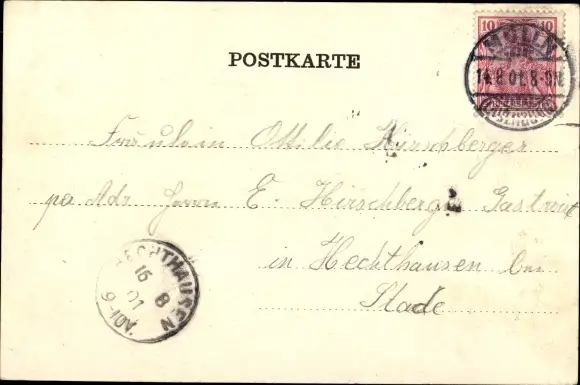 10 10
MÖLLN
POSTKARTE
14.8.01.8-9N.
Fräulein Ottilie Hirschberger
pa Adr. Herrn E. Hirschberger Gastwirt
in Hechthausen bei
Stade
HECHTHAUSEN
16 8
01
9-10V.